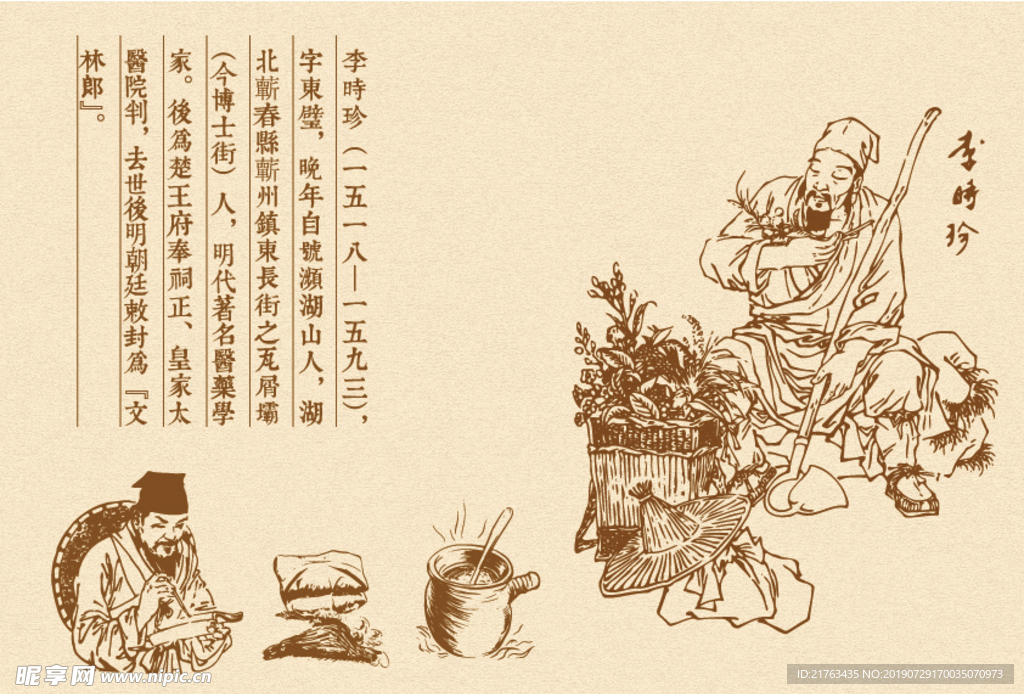 李時珍（一五一八—一五九三），
字東璧，晚年自號瀕湖山人，湖
北蘄春縣蘄州鎮東長街之瓦屑壩
（今博士街）人，明代著名醫藥學
家。後爲楚王府奉祠正、皇家太
醫院判，去世後明朝廷敕封爲『文
林郎』。
李時珍
昵享网 www.nipic.cn
ID:21763435 NO:20190729170035070973